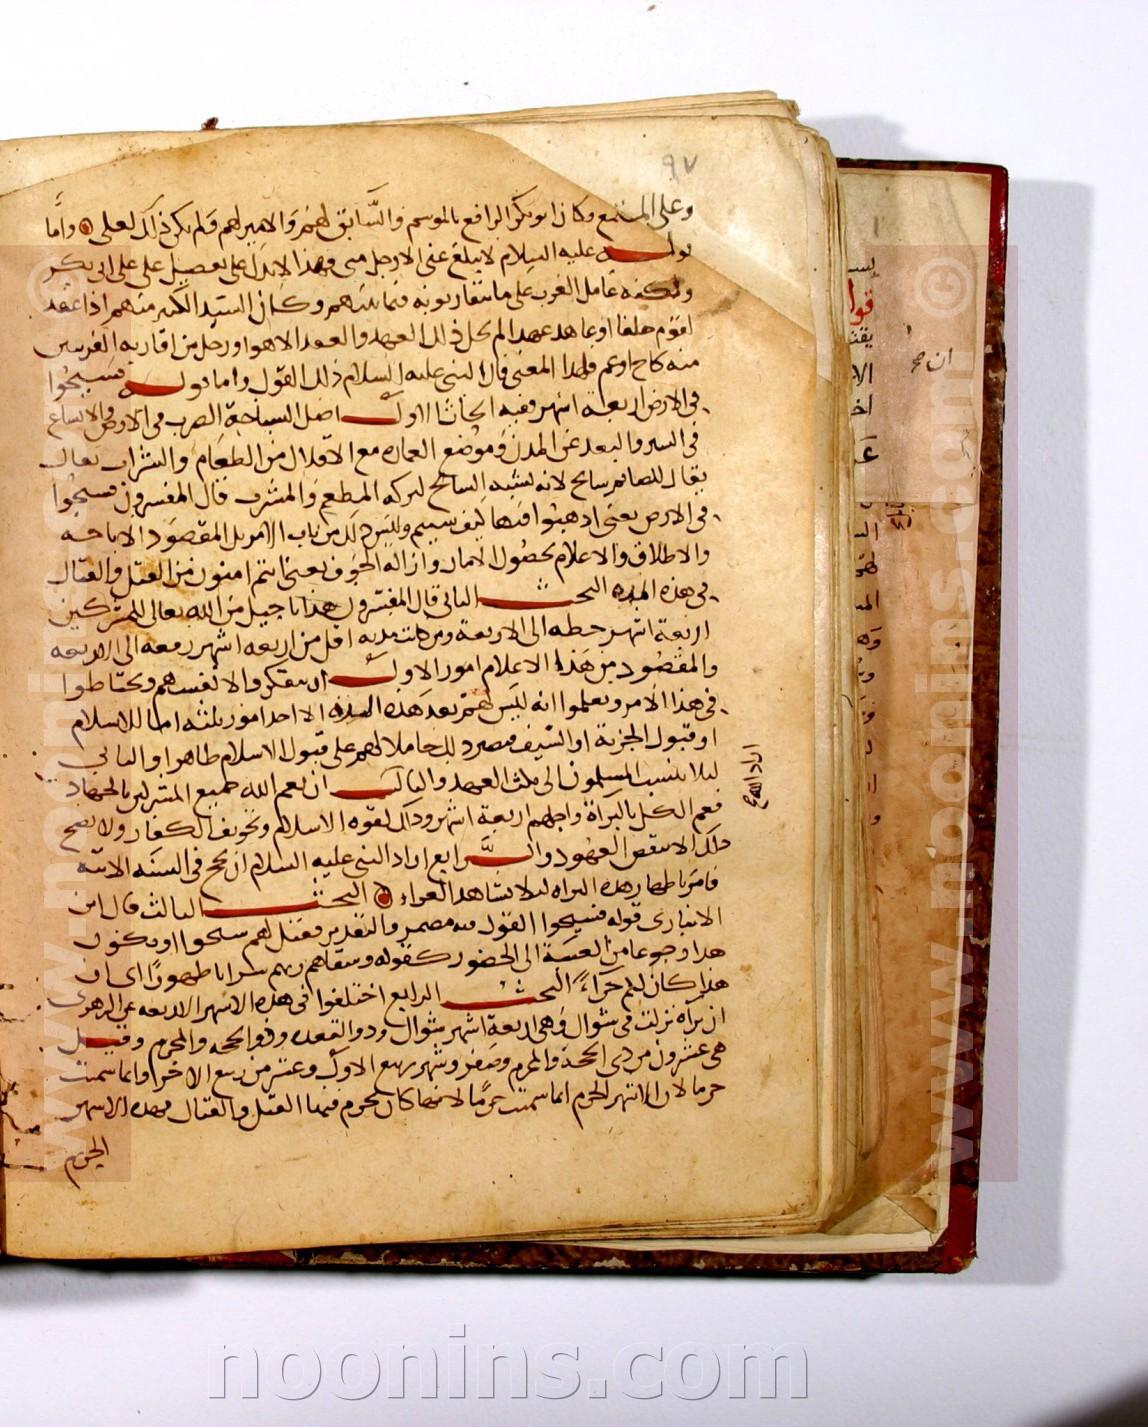 ٩٧
وعلى المستمع وكان ابو بكر الرافع بالموسم والسابق لهم والامير لهم ولم يكن ذلك لعلى واما
قوله عليه السلام لا يبلغ عنى الا رجل منى فهذا لا يدل على تفضيل على على ابى بكر
ولكنه عامل العرب على ما يتعارفونه فيما بينهم وكان السيد الكبير منهم اذا عقد
لقوم حلفا او عاهد عهدا لم يحل ذلك العهد والعقد الا هو او رجل من اقاربه القريبين
منه كاخ او عم فلهذا المعنى قال النبى عليه السلام ذلك القول واما قوله فسيحوا
فى الارض اربعة اشهر ففيه ابحاث الاول اصل السياحة الضرب فى الارض والاتساع
فى السير والبعد عن المدن وموضع العمارة مع الاقلال من الطعام والشراب يقال
يقال للصائم سايح لانه يشبه السايح لتركه المطعم والمشرب قال المفسرون فسيحوا
فى الارض يعنى اذهبوا فيها كيف شيتم وليس ذلك من باب الامر بل المقصود الاباحة
والاطلاق والاعلام بحصول الامان وازالة الخوف يعنى انتم امنون من القتل والقتال
فى هذه المدة البحث الثانى قال المفسرون هذا تاجيل من الله تعالى للمشركين
اربعة اشهر حطه الى الاربعة ومن كانت مدته اقل من اربعة اشهر رفعه الى الاربعة
والمقصود من هذا الاعلام امور الاول ان يتفكروا لانفسهم ويحتاطوا
فى هذا الامر ويعلموا انه ليس لهم بعد هذه المدة الا احد امور ثلثة اما الاسلام
او قبول الجزية او السيف فيصير ذلك حاملا لهم على قبول الاسلام ظاهرا والثانى
ليلا ينسب المسلمون الى نكث العهد والثالث ان يعم الله جميع المشركين بالجهاد
فعم الكل بالبراة واجلهم اربعة اشهر وذلك لقوة الاسلام وتخويف الكفار ولا يصح
ذلك الا بنقض العهود والرابع اراد النبى عليه السلام ان يحج فى السنة الاتية
فامر باظهار هذه البراة ليلا يشاهد العراة البحث الثالث قال ابن
الانبارى قوله فسيحوا القول فيه مضمر والتقدير فقيل لهم سيحوا او يكون
هذا رجوعا من الغيبة الى الحضور كقوله وسقاهم ربهم شرابا طهورا ان
هذا كان لكم جزاء البحث الرابع اختلفوا فى هذه الاشهر الاربعة عن الزهرى
ان براة نزلت فى شوال وهى اربعة اشهر شوال وذو القعدة وذو الحجة والمحرم وقيل
هى عشرون من ذى الحجة والمحرم وصفر وشهر ربيع الاول وعشر من ربيع الاخر وانما سميت
حرما لان الاشهر الحرم انما سميت حرما لانها كان يحرم فيها القتل والقتال فهذه الاشهر
الحرم
ان صح
noonins.com